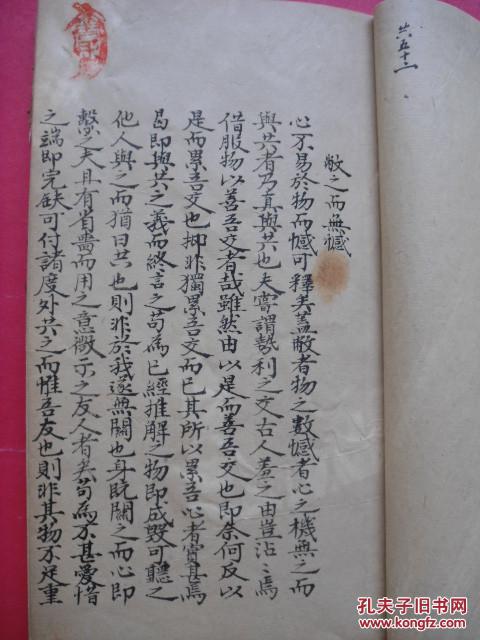 共五十二
敝之而無憾
心不易於物而憾可釋矣蓋敝者物之數憾者心之機無之而
與共者乃真與共也夫寧謂勢利之交古人羞之由豈沾沾焉
借服物以善吾交者哉雖然由以是而善吾交也即柰何反以
是而累吾交也抑非獨累吾交而已其所以累吾心者實甚焉
曷即與共之義而終言之苟為已經推解之物即成毀可聽之
他人與之而猶曰共也則非於我遂無關也身既關之而心即
繫之夫具有省嗇而用之意微示之友人者矣苟為不甚愛惜
之端即完缺可付諸度外共之而惟吾友也則非其物不足重
孔夫子旧书网
KONGFZ.COM